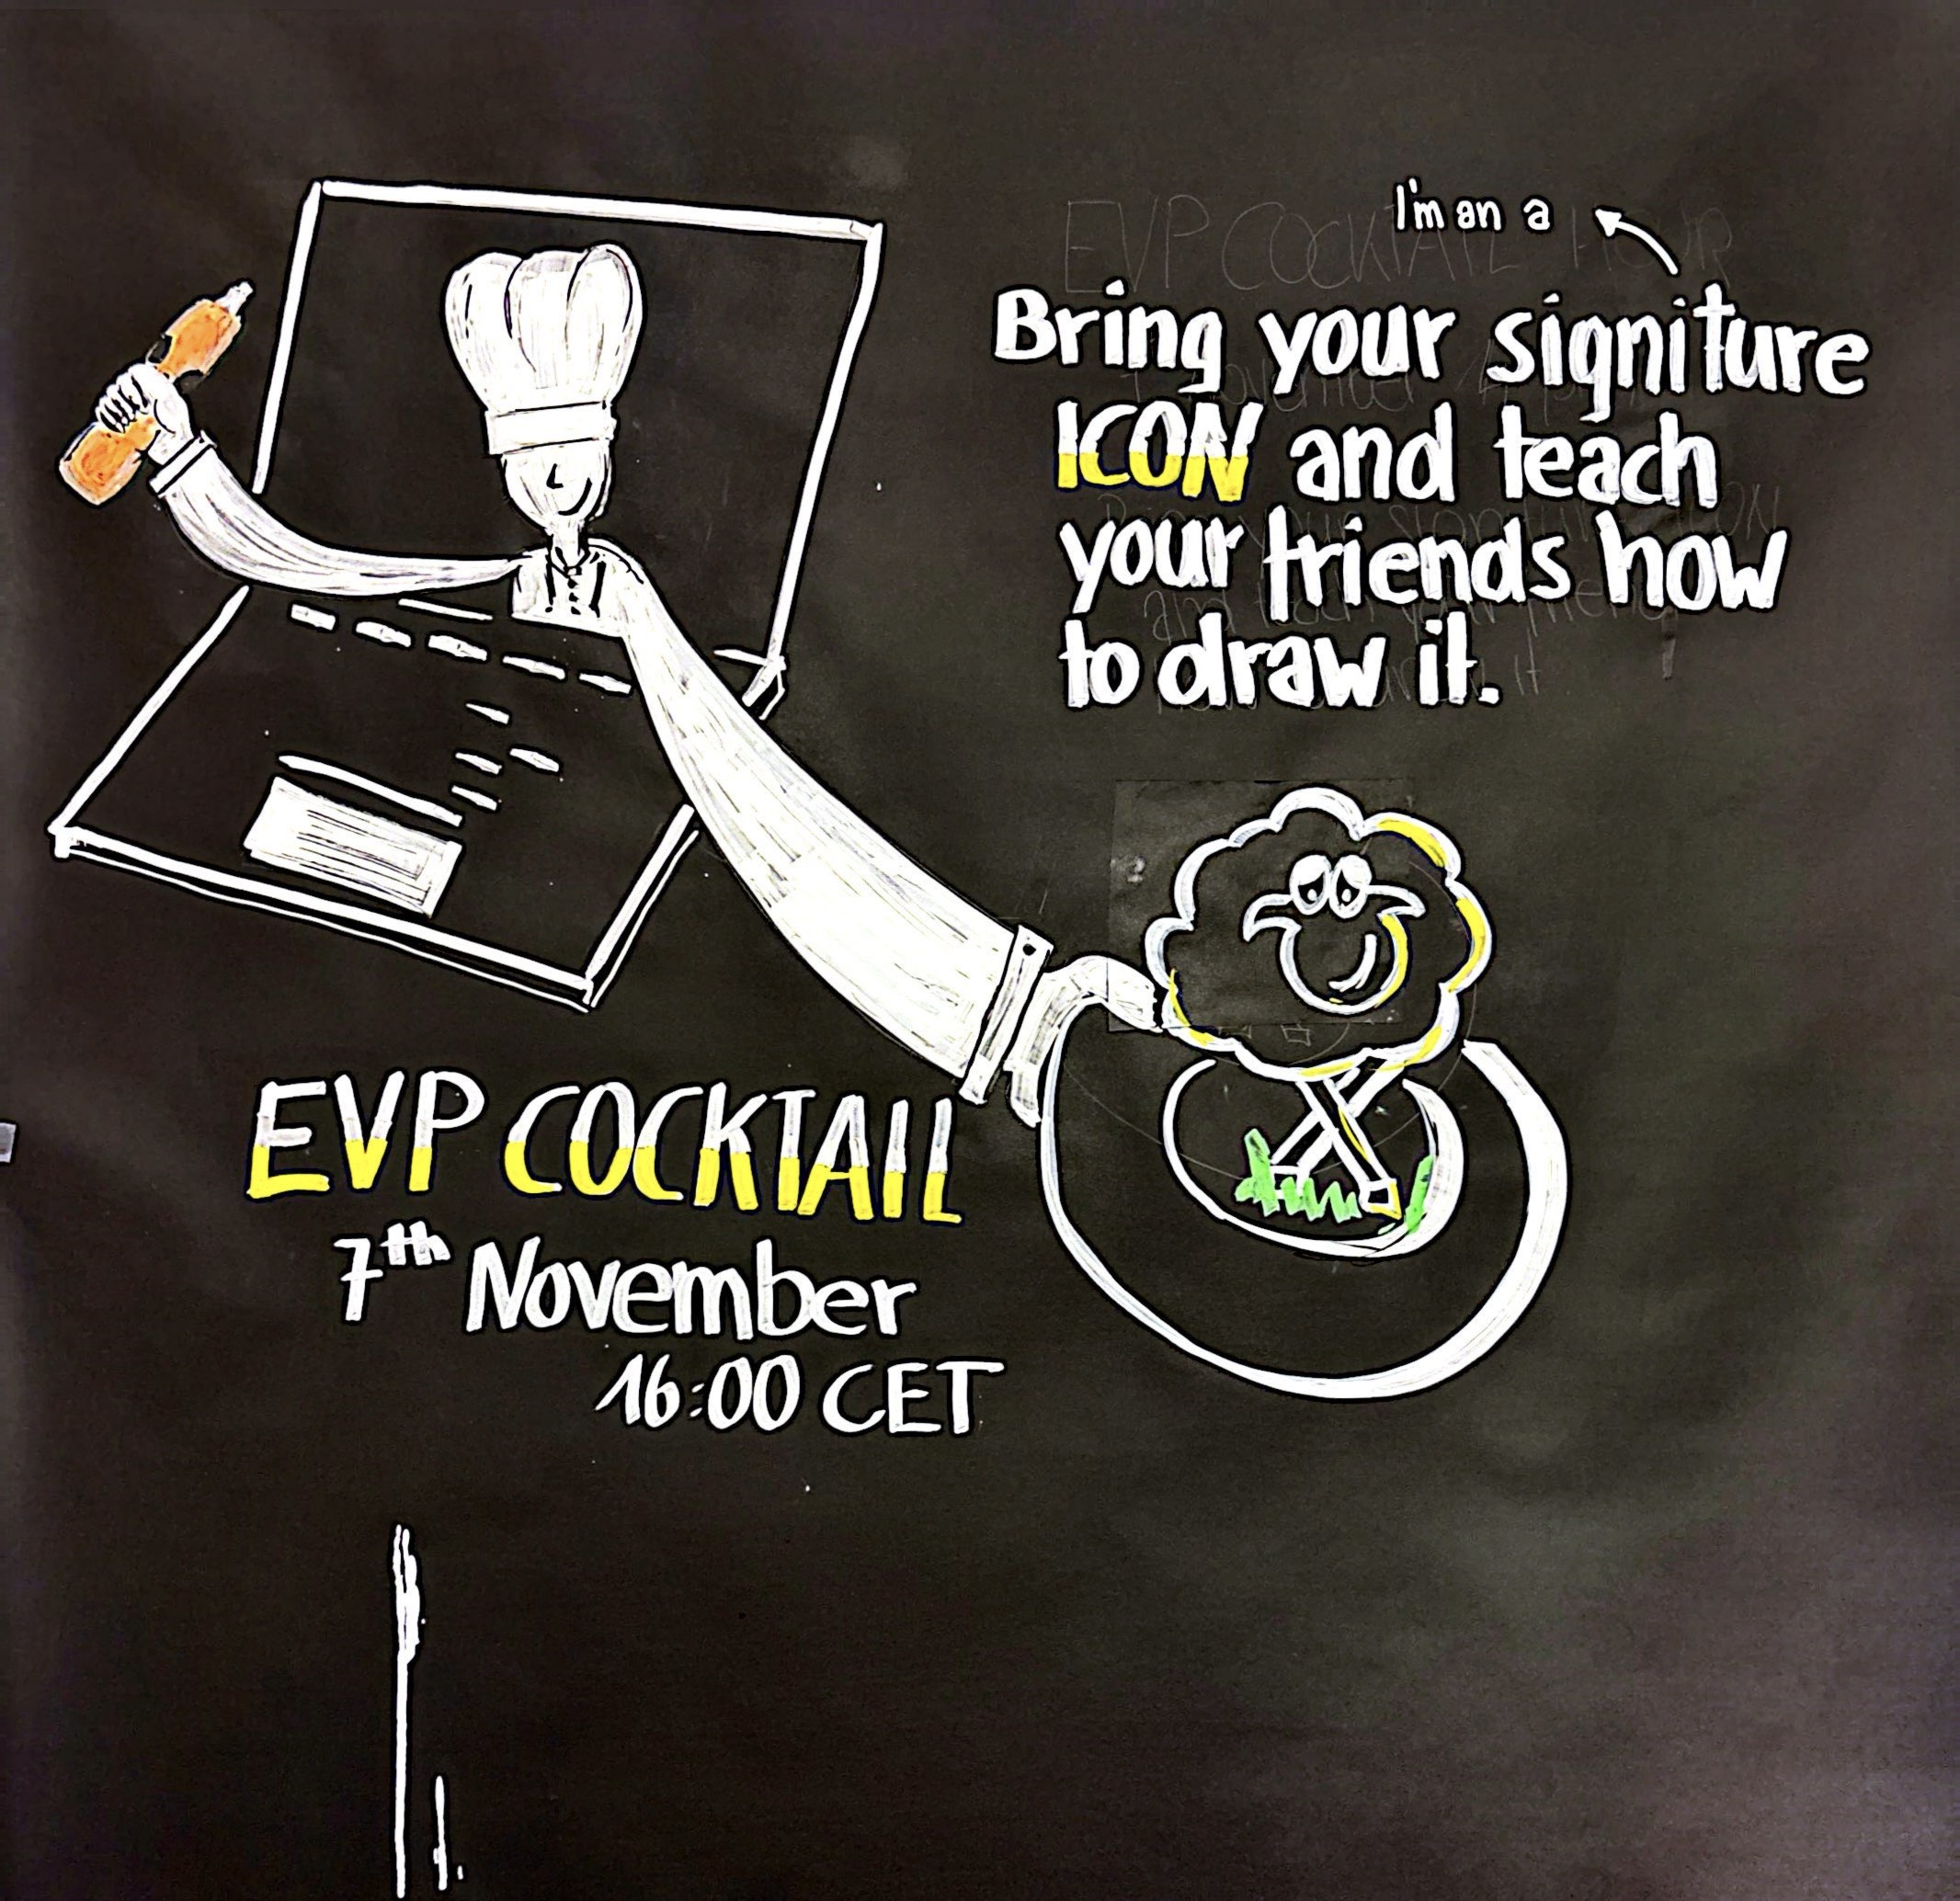 EVP COCKTAIL HOUR
I'm an a
Bring your signiture
ICON and teach
your friends how
to draw it.
EVP COCKTAIL
7th November
16:00 CET